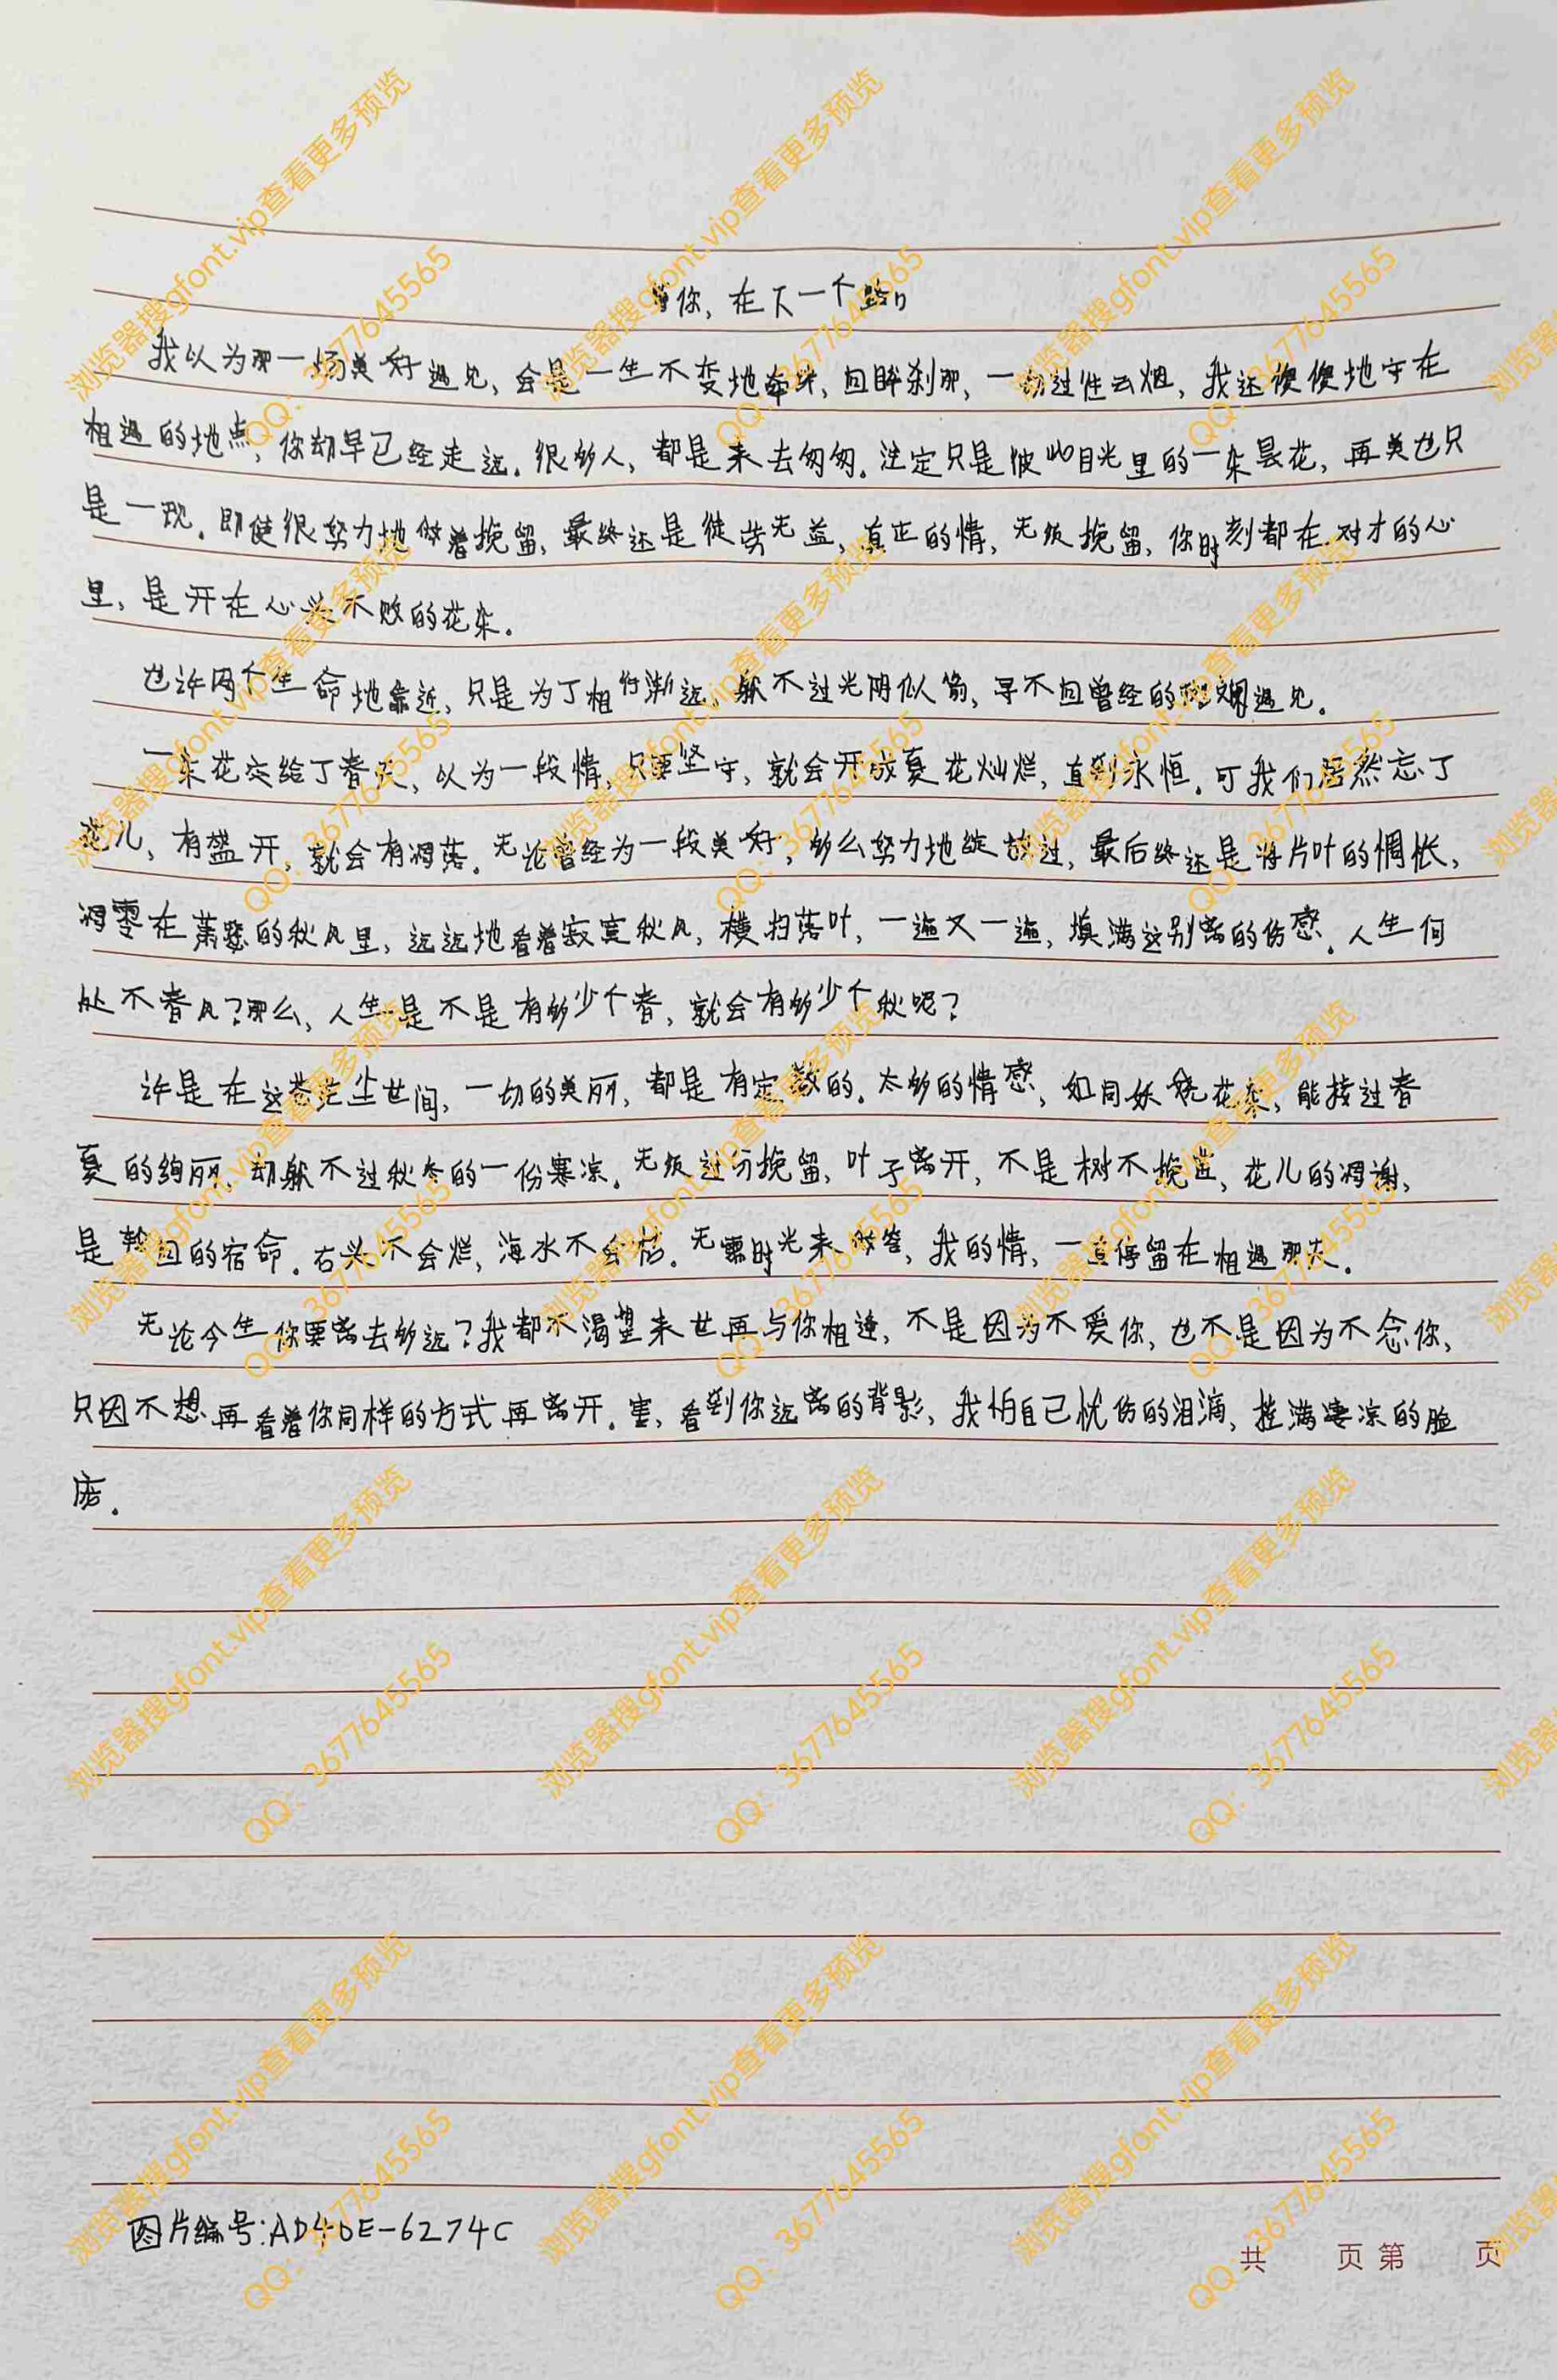 等你,在下一个路口
我以为那一场美好遇见,会是一生不变地牵绊,回眸刹那,一切过往云烟,我还傻傻地守在
相遇的地点,你却早已经走远.很多人,都是来去匆匆.注定只是彼此目光里的一朵昙花,再美也只
是一现.即使很努力地做着挽留,最终还是徒劳无益,真正的情,无须挽留,你时刻都在对才的心
里,是开在心头不败的花朵.
也许两个生命地靠近,只是为了相行渐远,躲不过光阴似箭,寻不回曾经的斑斓遇见.
一朵花交给了春天,以为一段情,只要坚守,就会开成夏花灿烂,直到永恒.可我们居然忘了
花儿,有盛开,就会有凋落.无论曾经为一段美好,多么努力地绽放过,最后终还是将片叶的惆怅,
凋零在萧瑟的秋风里,远远地看着寂寞秋风,横扫落叶,一遍又一遍,填满这别离的伤感.人生何
处不春风?那么,人生是不是有多少个春,就会有多少个秋呢?
许是在这苍茫尘世间,一切的美丽,都是有定数的.太多的情感,如同妖娆花朵,能接过春
夏的绚丽,却躲不过秋冬的一份寒凉.无须过分挽留,叶子离开,不是树不挽留,花儿的凋谢,
是轮回的宿命.石头不会烂,海水不会枯.无需时光来作答,我的情,一直停留在相遇那天.
无论今生你要离去多远?我都不渴望来世再与你相逢,不是因为不爱你,也不是因为不念你,
只因不想再看着你同样的方式再离开.害,看到你远离的背影,我怕自己忧伤的泪滴,挂满凄凉的脸
庞.
图片编号:AD4DE-6274C
共 页第 页
浏览器搜gfont.vip查看更多预览
QQ:3677645565